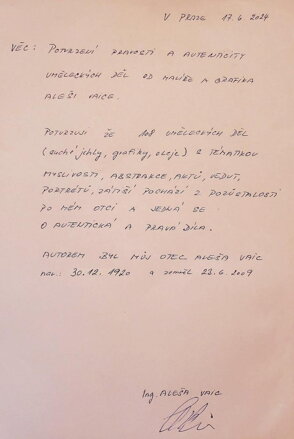 V PRAZE 17. 6. 2024
VĚC: POTVRZENÍ PRAVOSTI A AUTENTICITY
UMĚLECKÝCH DĚL OD MALÍŘE A GRAFIKA
ALEŠI VAICE.
POTVRZUJI ŽE 108 UMĚLECKÝCH DĚL
(suché jehly, grafiky, oleje) S TÉMATIKOU
MYSLIVOSTI, ABSTRAKCE, AKTŮ, VEDUT,
PORTRÉTŮ, ZÁTIŠÍ POCHÁZÍ Z POZŮSTALOSTI
PO MÉM OTCI A JEDNÁ SE
O AUTENTICKÁ A PRAVÁ DÍLA.
AUTOREM BYL MŮJ OTEC ALEŠA VAIC
nar.: 30. 12. 1920 a zemřel 23. 6. 2009
Ing. ALEŠA VAIC